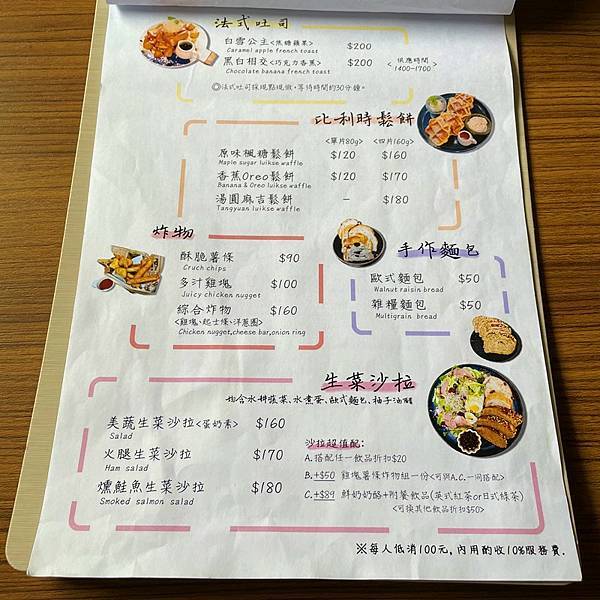 法式吐司
白雪公主<焦糖蘋果> $200
Caramel apple french toast
黑白相交<巧克力香蕉> $200
Chocolate banana french toast
< 供應時間 1400-1700 >
◎法式吐司採現點現做，等待時間約30分鐘。
比利時鬆餅
<單片80g> <四片160g>
原味楓糖鬆餅 $120 $160
Maple sugar luikse waffle
香蕉Oreo鬆餅 $120 $170
Banana & Oreo luikse waffle
湯圓麻吉鬆餅 – $180
Tangyuan luikse waffle
炸物
酥脆薯條 $90
Cruch chips
多汁雞塊 $100
Juicy chicken nugget
綜合炸物 $160
<雞塊、起士條、洋蔥圈>
Chicken nugget,cheese bar,onion ring
手作麵包
歐式麵包 $50
Walnut raisin bread
雜糧麵包 $50
Multigrain bread
生菜沙拉
均含水耕蔬菜、水煮蛋、歐式麵包、柚子油醋
美蔬生菜沙拉<蛋奶素> $160
Salad
火腿生菜沙拉 $170
Ham salad
燻鮭魚生菜沙拉 $180
Smoked salmon salad
沙拉超值配:
A.搭配任一飲品折扣$20
B.+$50 雞塊薯條炸物組一份<可與A.C.一同搭配>
C.+$89 鮮奶奶酪+附餐飲品(英式紅茶or日式綠茶)
<可換其他飲品折扣$50>
※每人低消100元，內用酌收10%服務費.